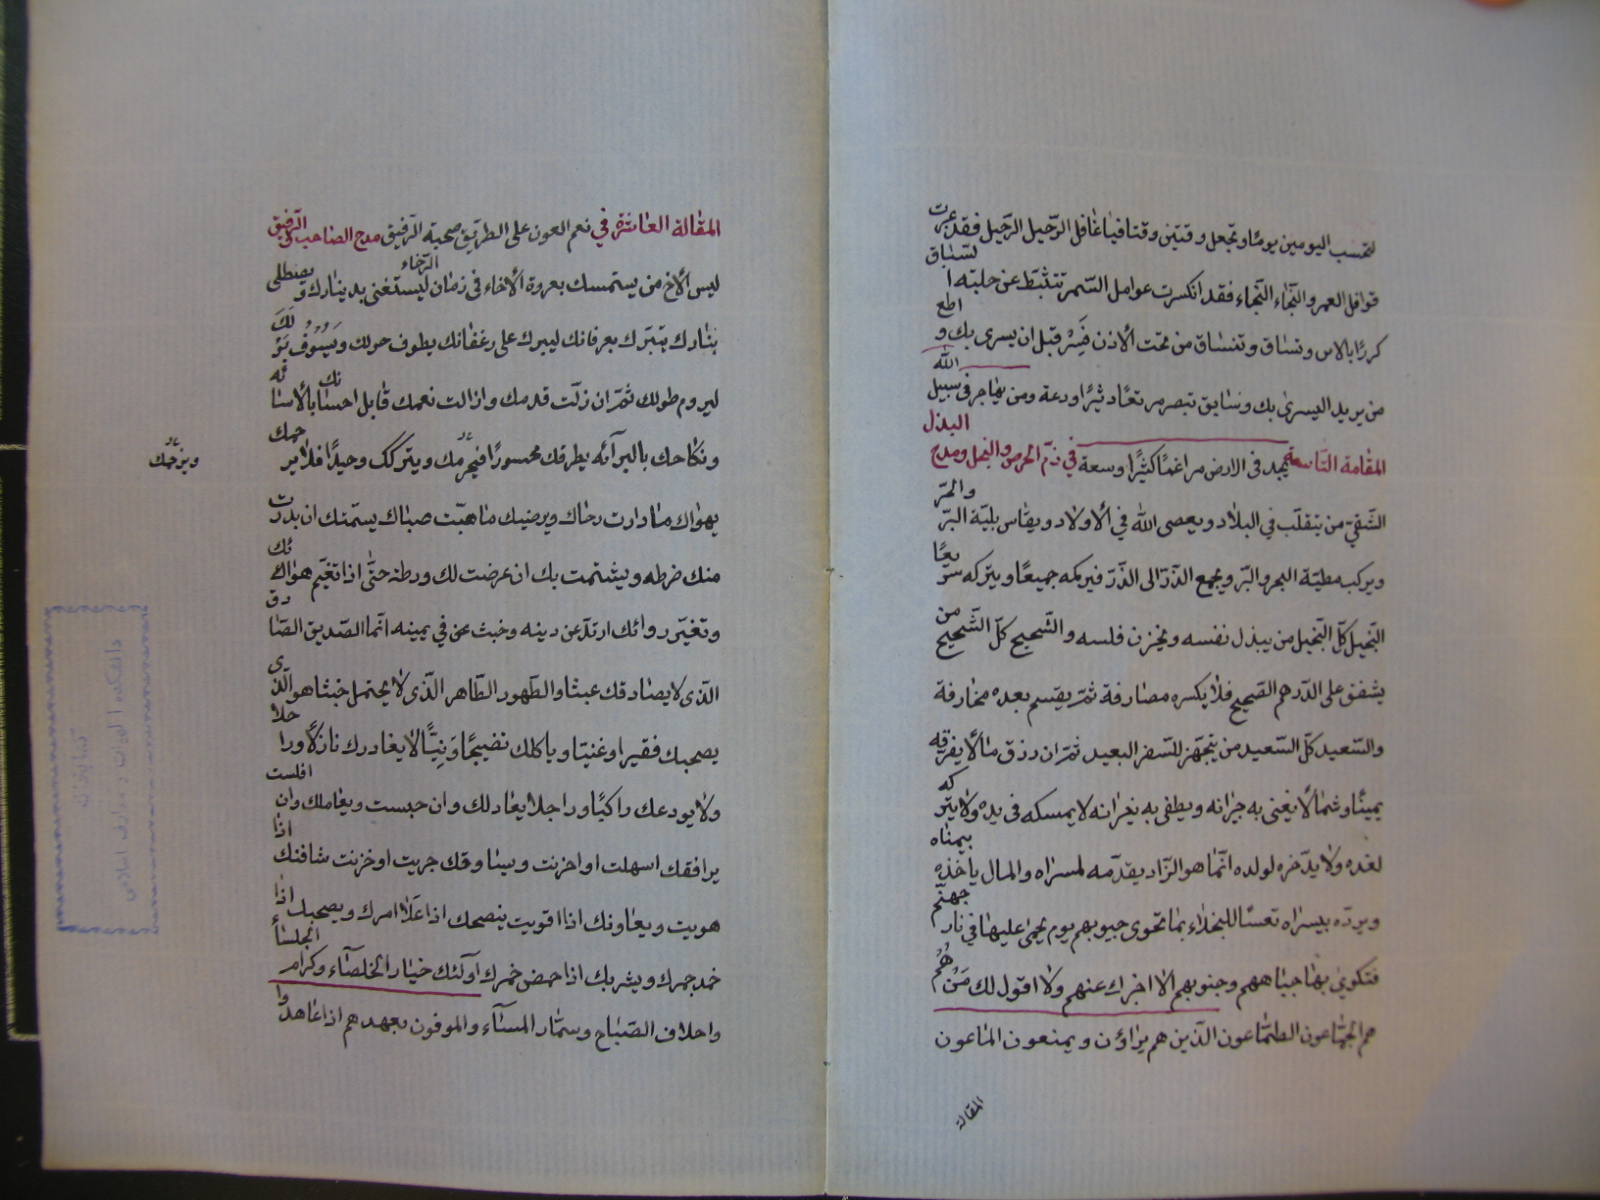 لتحسب اليومين يومًا وتجعل وقتين وقتا فيا غافل الرّحيل الرّحيل فقد عبرت
قوافل العمر والنّجاء النّجاء فقد انكسرت عوامل السّمر تتثبّط عن حلبته ا لسّباق
كررًا بالامس وتساق وتنساق من تحت الأذن فَسِرْ قبل ان يسرى بك و اطع
من يريد اليسرى بك وسابق تبصر مر تعًا دثيرًا ودعة ومن يهاجر فى سبيل الله
يجد فى الارض مراغمًا كثيرًا وسعة المقامة التّاسعة في ذمّ الحرص والبخل ومدح البذل
الشّقيّ من يتقلّب في البلاد ويعصى الله في الأولاد ويقاس بليّة البرّ والحرّ
ويركب مطيّة البحر والبّر ويجمع الذّرّ الى الذّرّ فيركمه جميعًا ويتركه سر يعًا
البّخيل كلّ البّخيل من يبذل نفسه ويخزن فلسه والشّحيح كلّ الشّحيح من
يشفق على الدّرهم الصّحيح فلا يكسره مصارفة ثمّ يقسم بعده مخارفة
والسّعيد كلّ السّعيد من يتجهّز للسّفر البعيد ثمّ ان رزق مالًا يفرقه
يمينًا وشمالًا يغنى به جيرانه ويطفى به نيرانه لا يمسكه فى يده ولا يتر كه
لغده ولا يدّخره لولده انّما هو الزّاد يقدّمه لمسراه والمال ياخذه بيمناه
ويردّه بيسراه تعسًا للبخلاء بما تحوى جيوبهم يوم يحمى عليها في نار جهنّم
فتكوى بها جباههم وجنوبهم ألا اخبرك عنهم ولا اقول لك مَنْ هُمْ
هم الجمّاعون الطمّاعون الذّين هم يراؤن ويمنعون الماعون
المقالة
المقالة العاشرة في مدح الصّاحب و الرّفيق نعم العون على الطريق صحبة الرّفيق
ليس الأخ من يستمسك بعروة الأخاء فى زمان الرّخاء ليستغنى بدينارك و يصطلى
بنارك يتبرّك بعرفانك ليبرك على رغفانك يطوف حولك ويسوف بَوْ لَكَ
ليروم طولك ثمّ ان زلّت قدمك وازالت نعمك قابل احسا نك بالأسا ئه
ونكاحك بالبرآئه يطرقك محسورًا فيجرمك ويتركك وحيدًا فلا ير حمك
ويزحمك
يهواك ما دارت رحاك ويرضيك ما هبّت صباك يسمّتك ان بدر ت
منك ضرطه ويشتمت بك ان عرضت لك ورطة حتّى اذا تغيّم هواك ئك
وتغيّر روائك ارتدّ عن دينه وخبث عن في يمينه انّما الصّديق الصّا دق
الذّى لا يصادقك عبثا والطّهور الطّاهر الذّى لا يحتمل خبثا هو الّذ ى
يصحبك فقيرا وغنيّا وياكلك نضيجًا وَنِيًّا لا يغادرك نازلًا ورا حلا
ولا يودعك راكبًا وراجلا يعادلك وان حبست ويعاملك وان افلست
يرافقك اسهلت او احزنت ويساوقك جريت او خزنت شافنك اذا
هويت ويعاونك اذا اقويت ينصحك اذا عَلا امرك ويصحبك اذا
خمد جمرك ويشربك اذا حمض خمرك اولئك خيار الخلصآء وكرام الجلسآء
واحلاف الصّباح وسمّار المسآء والموفون بعهدهم اذا عاهدوا